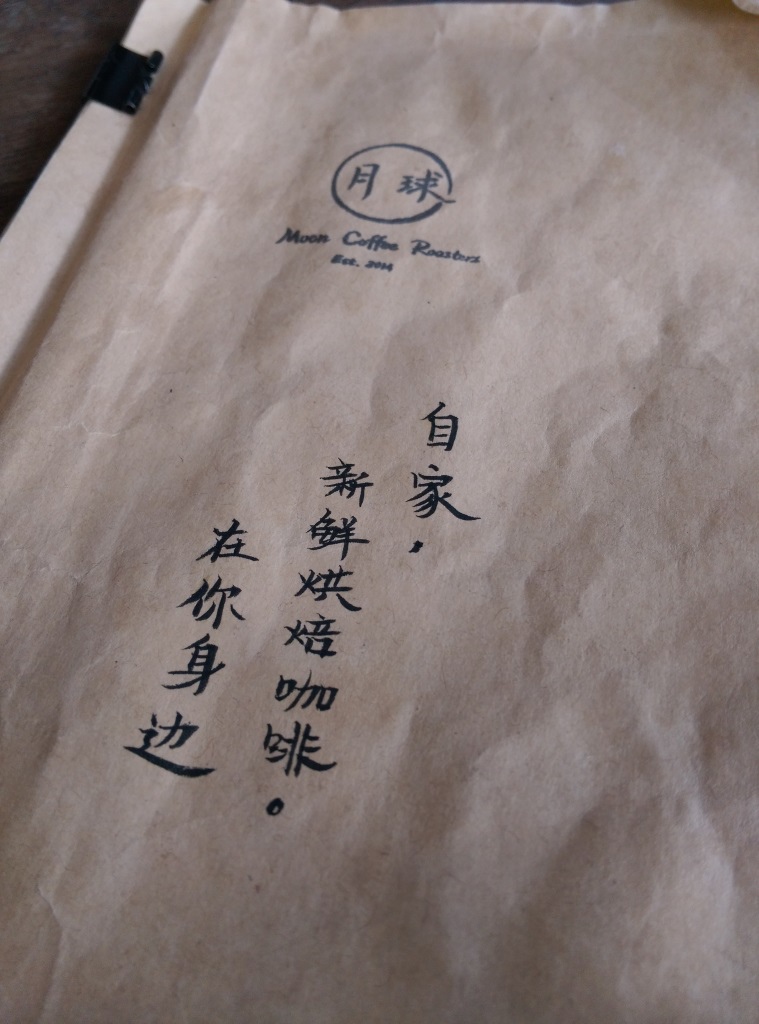 月球
Moon Coffee Roasters
Est. 2014
自家，
新鲜烘焙咖啡。
在你身边